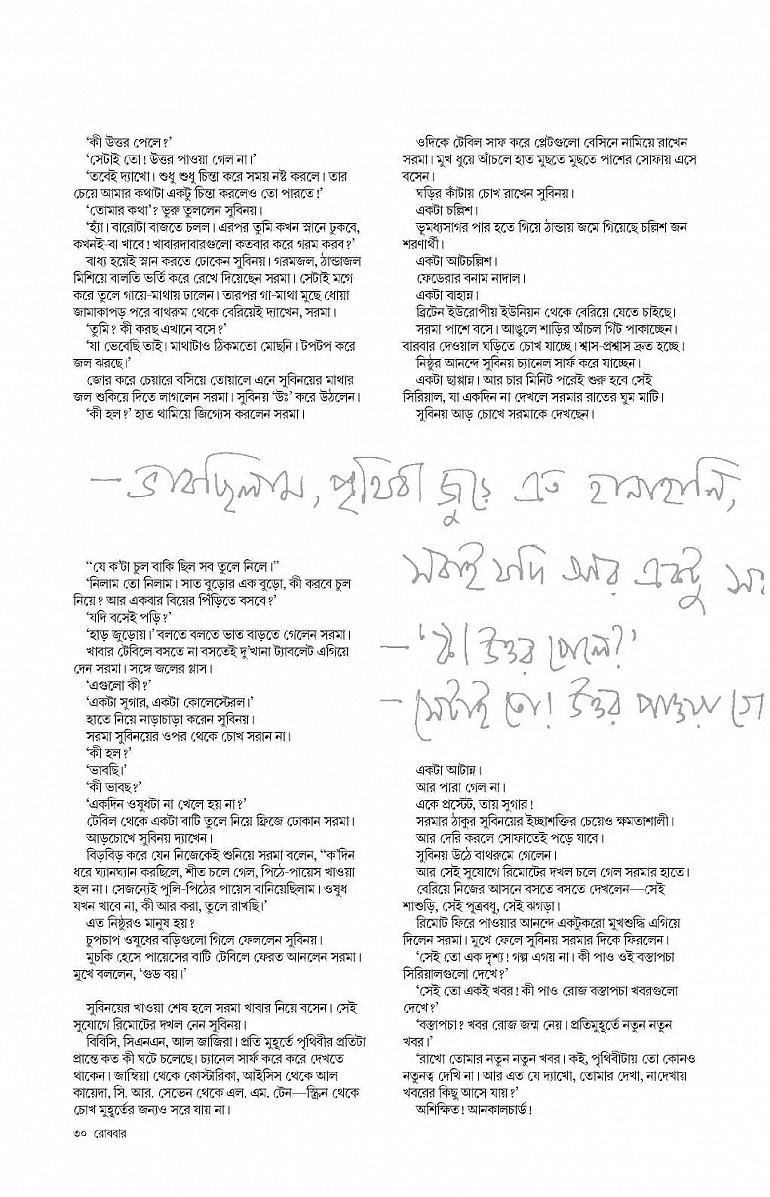 ‘কী উত্তর পেলে?’
‘সেটাই তো! উত্তর পাওয়া গেল না।’
‘তবেই দ্যাখো। শুধু শুধু চিন্তা করে সময় নষ্ট করলে। তার
চেয়ে আমার কথাটা একটু চিন্তা করলেও তো পারতে!’
‘তোমার কথা’? ভুরু তুললেন সুবিনয়।
‘হ্যাঁ। বারোটা বাজতে চলল। এরপর তুমি কখন স্নানে ঢুকবে,
কখনই-বা খাবে! খাবারদাবারগুলো কতবার করে গরম করব?’
বাধ্য হয়েই স্নান করতে ঢোকেন সুবিনয়। গরমজল, ঠান্ডাজল
মিশিয়ে বালতি ভর্তি করে রেখে দিয়েছেন সরমা। সেটাই মগে
করে তুলে গায়ে-মাথায় ঢালেন। তারপর গা-মাথা মুছে ধোয়া
জামাকাপড় পরে বাথরুম থেকে বেরিয়েই দ্যাখেন, সরমা।
‘তুমি? কী করছ এখানে বসে?’
‘যা ভেবেছি তাই। মাথাটাও ঠিকমতো মোছনি। টপটপ করে
জল ঝরছে।’
জোর করে চেয়ারে বসিয়ে তোয়ালে এনে সুবিনয়ের মাথার
জল শুকিয়ে দিতে লাগলেন সরমা। সুবিনয় ‘উঃ’ করে উঠলেন।
‘কী হল?’ হাত থামিয়ে জিগ্যেস করলেন সরমা।
“যে ক’টা চুল বাকি ছিল সব তুলে নিলে।”
‘নিলাম তো নিলাম। সাত বুড়োর এক বুড়ো, কী করবে চুল
নিয়ে? আর একবার বিয়ের পিঁড়িতে বসবে?’
‘যদি বসেই পড়ি?’
‘হাড় জুড়োয়।’ বলতে বলতে ভাত বাড়তে গেলেন সরমা।
খাবার টেবিলে বসতে না বসতেই দু’খানা ট্যাবলেট এগিয়ে
দেন সরমা। সঙ্গে জলের গ্লাস।
‘এগুলো কী?’
‘একটা সুগার, একটা কোলেস্টেরল।’
হাতে নিয়ে নাড়াচাড়া করেন সুবিনয়।
সরমা সুবিনয়ের ওপর থেকে চোখ সরান না।
‘কী হল?’
‘ভাবছি।’
‘কী ভাবছ?’
‘একদিন ওষুধটা না খেলে হয় না?’
টেবিল থেকে একটা বাটি তুলে নিয়ে ফ্রিজে ঢোকান সরমা।
আড়চোখে সুবিনয় দ্যাখেন।
বিড়বিড় করে যেন নিজেকেই শুনিয়ে সরমা বলেন, “ক’দিন
ধরে ঘ্যানঘ্যান করছিলে, শীত চলে গেল, পিঠে-পায়েস খাওয়া
হল না। সেজন্যেই পুলি-পিঠের পায়েস বানিয়েছিলাম। ওষুধ
যখন খাবে না, কী আর করা, তুলে রাখছি।’
এত নিষ্ঠুরও মানুষ হয়?
চুপচাপ ওষুধের বড়িগুলো গিলে ফেললেন সুবিনয়।
মুচকি হেসে পায়েসের বাটি টেবিলে ফেরত আনলেন সরমা।
মুখে বললেন, ‘গুড বয়।’
সুবিনয়ের খাওয়া শেষ হলে সরমা খাবার নিয়ে বসেন। সেই
সুযোগে রিমোটের দখল নেন সুবিনয়।
বিবিসি, সিএনএন, আল জাজিরা। প্রতি মুহূর্তে পৃথিবীর প্রতিটা
প্রান্তে কত কী ঘটে চলেছে। চ্যানেল সার্ফ করে করে দেখতে
থাকেন। জাম্বিয়া থেকে কোস্টারিকা, আইসিস থেকে আল
কায়েদা, সি. আর. সেভেন থেকে এল. এম. টেন—স্ক্রিন থেকে
চোখ মুহূর্তের জন্যও সরে যায় না।
ওদিকে টেবিল সাফ করে প্লেটগুলো বেসিনে নামিয়ে রাখেন
সরমা। মুখ ধুয়ে আঁচলে হাত মুছতে মুছতে পাশের সোফায় এসে
বসেন।
ঘড়ির কাঁটায় চোখ রাখেন সুবিনয়।
একটা চল্লিশ।
ভূমধ্যসাগর পার হতে গিয়ে ঠান্ডায় জমে গিয়েছে চল্লিশ জন
শরণার্থী।
একটা আটচল্লিশ।
ফেডেরার বনাম নাদাল।
একটা বাহান্ন।
ব্রিটেন ইউরোপীয় ইউনিয়ন থেকে বেরিয়ে যেতে চাইছে।
সরমা পাশে বসে। আঙুলে শাড়ির আঁচল গিঁট পাকাচ্ছেন।
বারবার দেওয়াল ঘড়িতে চোখ যাচ্ছে। শ্বাস-প্রশ্বাস দ্রুত হচ্ছে।
নিষ্ঠুর আনন্দে সুবিনয় চ্যানেল সার্ফ করে যাচ্ছেন।
একটা ছাপ্পান্ন। আর চার মিনিট পরেই শুরু হবে সেই
সিরিয়াল, যা একদিন না দেখলে সরমার রাতের ঘুম মাটি।
সুবিনয় আড় চোখে সরমাকে দেখছেন।
— ভাবছিলাম, পৃথিবী জুড়ে এত হানাহানি,
সবাই যদি আর একটু সং
— ‘কী উত্তর পেলে?’
— সেটাই তো! উত্তর পাওয়া গে
একটা আটান্ন।
আর পারা গেল না।
একে প্রস্টেট, তায় সুগার!
সরমার ঠাকুর সুবিনয়ের ইচ্ছাশক্তির চেয়েও ক্ষমতাশালী।
আর দেরি করলে সোফাতেই পড়ে যাবে।
সুবিনয় উঠে বাথরুমে গেলেন।
আর সেই সুযোগে রিমোটের দখল চলে গেল সরমার হাতে।
বেরিয়ে নিজের আসনে বসতে বসতে দেখলেন—সেই
শাশুড়ি, সেই পুত্রবধূ, সেই ঝগড়া।
রিমোট ফিরে পাওয়ার আনন্দে একটুকরো মুখশুদ্ধি এগিয়ে
দিলেন সরমা। মুখে ফেলে সুবিনয় সরমার দিকে ফিরলেন।
‘সেই তো এক দৃশ্য! গল্প এগয় না। কী পাও ওই বস্তাপচা
সিরিয়ালগুলো দেখে?’
‘সেই তো একই খবর! কী পাও রোজ বস্তাপচা খবরগুলো
দেখে?’
‘বস্তাপচা? খবর রোজ জন্ম নেয়। প্রতিমুহূর্তে নতুন নতুন
খবর।’
‘রাখো তোমার নতুন নতুন খবর। কই, পৃথিবীটায় তো কোনও
নতুনত্ব দেখি না। আর এত যে দ্যাখো, তোমার দেখা, না দেখায়
খবরের কিছু আসে যায়?’
অশিক্ষিত! আনকালচার্ড!
৩০ রোববার